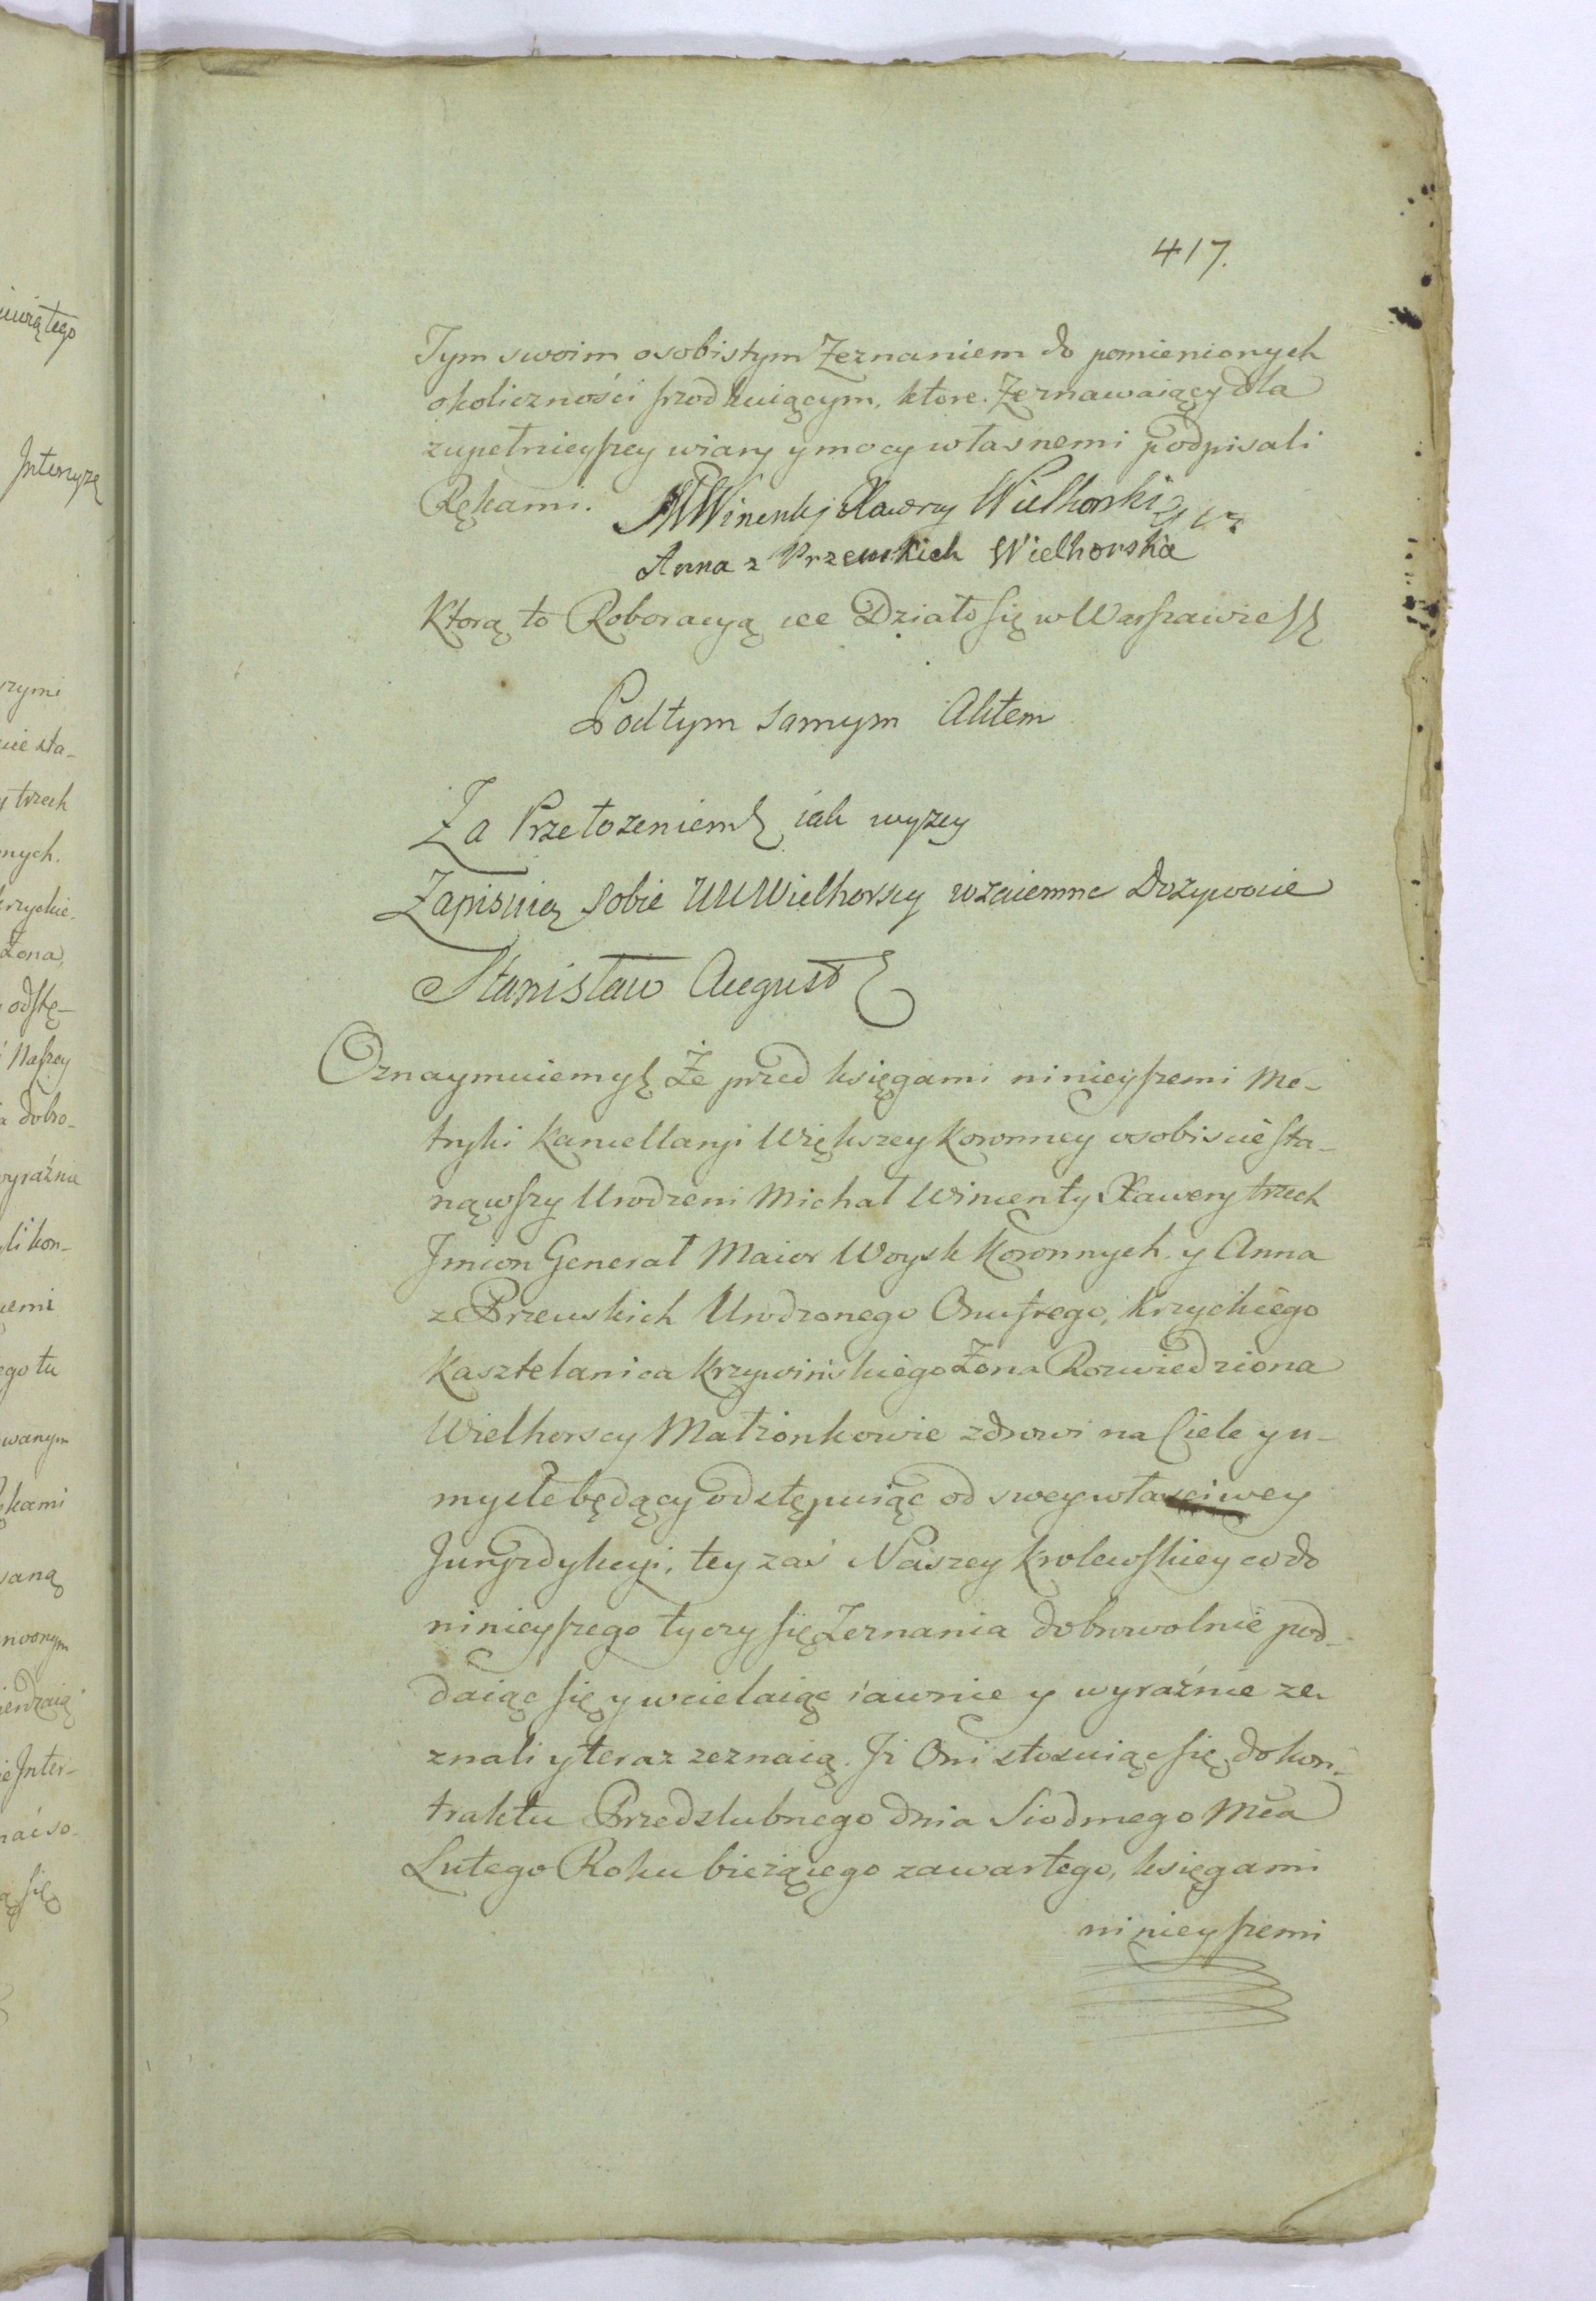 417.
Tym swoim osobistym Zeznaniem do pomienionych
okoliczności srodkuiącym, ktore Zeznawaiący dla
zupełnieyszey wiary y mocy własnemi podpisali
Rękami. Wincenty Xawery Wielhorski
Anna z Przeuskich Wielhorska
Ktorą to Roboracyą etc Działo się w Warszawie
Pod tym samym Aktem
Za Przełożeniem iak wyżey
Zapisuią sobie UUWielhorscy wzaiemne Dożywocie
Stanisław August
Oznaymuiemy Że przed księgami ninieyszemi Me-
tryki Kancellaryi Większey Koronney osobiscie sta-
nąwszy Urodzeni Michał Wincenty Xawery trzech
Jmion Generał Maior Woysk Koronnych y Anna
z Przeuskich Urodzonego Onufrego, Krzyckiego
Kasztelanica Krzywińskiego Żona Rozwiedziona
Wielhorscy Małżonkowie zdrowi na Ciele y u-
mysle będący odstępuiąc od swey własciwey
Juryzdykcyi, tey zaś Naszey Krolewskiey co do
ninieyszego tyczy się Zeznania dobrowolnie pod-
daiąc się y wcielaiąc iawnie y wyraźnie ze-
znali y teraz zeznaią. Jż Oni stosuiąc się do kon-
traktu Przedslubnego dnia Siodmego Mca
Lutego Roku bieżącego zawartego, księgami
ninieyszemi
uiątego
Intercyzę
rzymi
cie sta-
y trzech
nych.
krzyckie.
Żona,
odstę-
Naszey
dobro-
wyraźnie
li kon-
iemi
ego tu
wanym
ękami
saną
Inter-
się